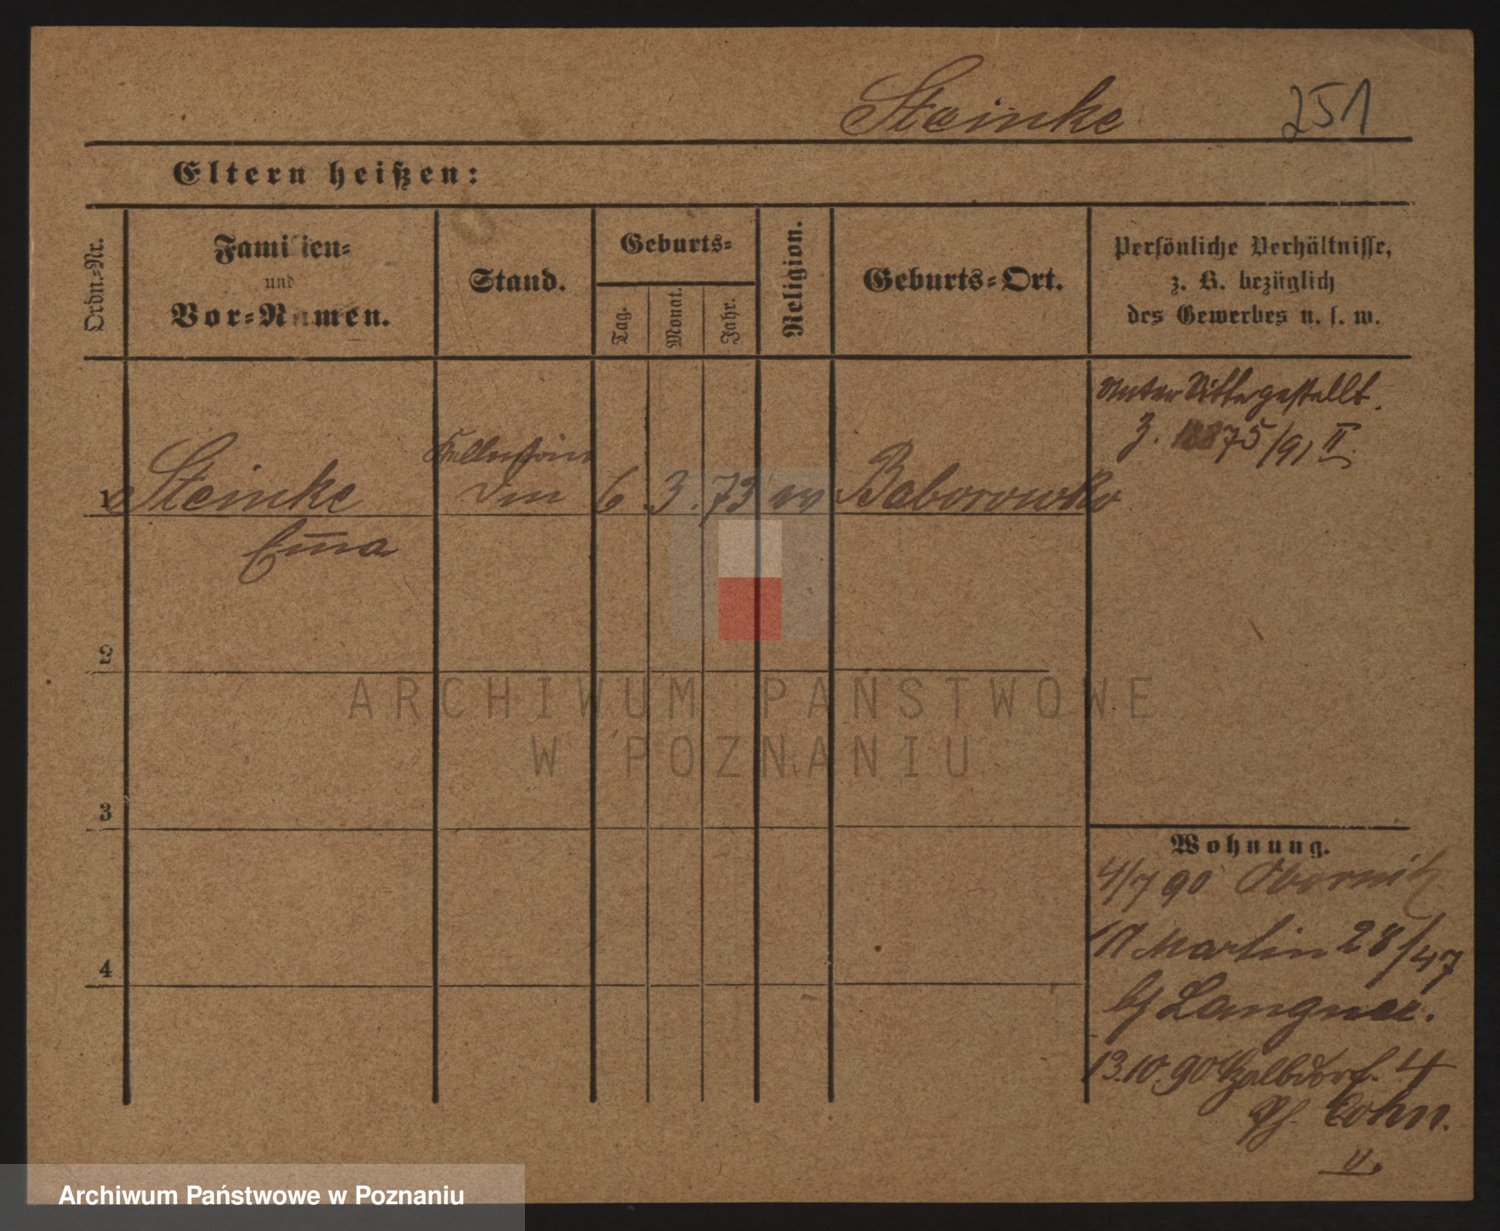 Steinke 251
Eltern heißen:
Ordn.-Nr.
Familien-
und
Vor-Namen.
Stand.
Geburts-
Tag.
Monat.
Jahr.
Religion.
Geburts-Ort.
Persönliche Verhältnisse,
z. B. bezüglich
des Gewerbes u. s. w.
Unter Sitte gestellt.
/91 II
Kellnerin
1 Steinke 6 3. 73 ev Baborowko
Em̄a
2
3
4
ARCHIWUM PAŃSTWOWE
W POZNANIU
Wohnung.
4/7 90 Obornik
Martin 28/47
Langner.
13.10.90 4
Cohn.
Archiwum Państwowe w Poznaniu